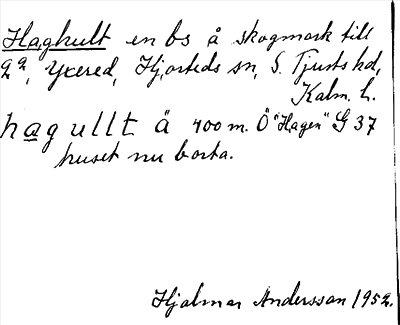 Haghult en bs å skogmark till
2², Yxered, Hjorteds sn, S. Tjusts hd,
Kalm. l.
hagullt ä 400 m. Ö "Hagen" G 37
huset nu borta.
Hjalmar Andersson 1952.